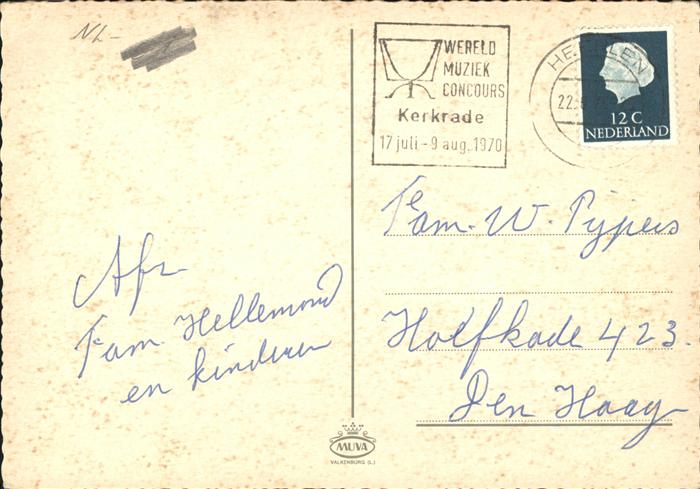 NL-
WERELD
MUZIEK
CONCOURS
Kerkrade
17 juli - 9 aug. 1970
22.
12 C
NEDERLAND
Fam. W. Pijpers
Afz.
Fam. Hellemond
en kinderen
Hoefkade 423.
Den Haag
MUVA
VALKENBURG (L.)